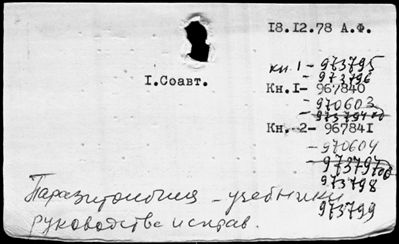 18.12.78 А.Ф.
кн. I - 973795
- 973796
I.Соавт.
Кн.I- 967840
- 970603
- 973794
Кн. 2- 967841
- 970604
- 973797
973798
973799
Паразитология - учебники
руководства и справ.